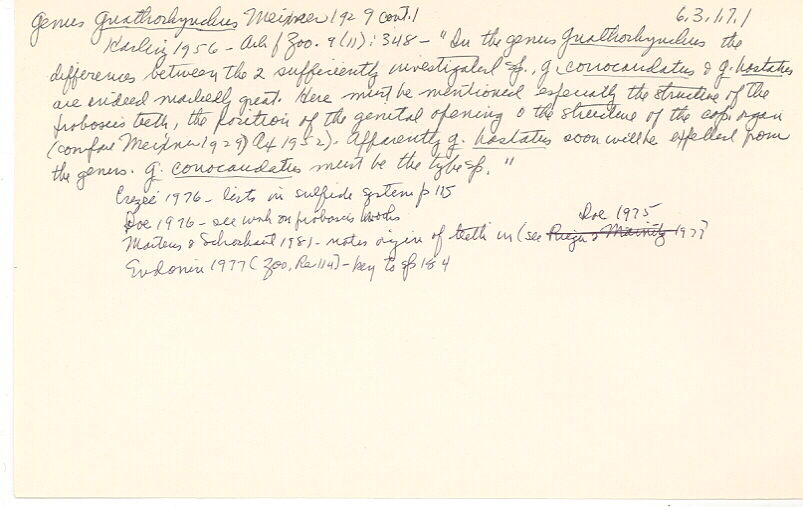 Genus Gnathorhynchus Meixner 1929 cont./ 6.3.1.17.1
Karling 1956 - Ark f Zoo. 9(11): 348 - "In the genus Gnathorhynchus the
differences between the 2 sufficiently investigated sp., g. conocaudatus & g. hastatus
are indeed markedly great. Here must be mentioned especially the structure of the
proboscis teeth, the position of the genital opening & the structure of the cop. organ
(compare Meixner 1929, Ax 1952). Apparently g. hastatus soon will be expelled from
the genus. G. conocaudatus must be the type sp."
Crezée 1976 - lists in sulfide system p 115
Doe 1976 - see work on proboscis hooks
Doe 1975
Martens & Schockaert 1981 - notes origin of teeth in (see Rieger & Mainitz 1977)
Evdonin 1977 (Zoo, Re 114) - key to sp 184